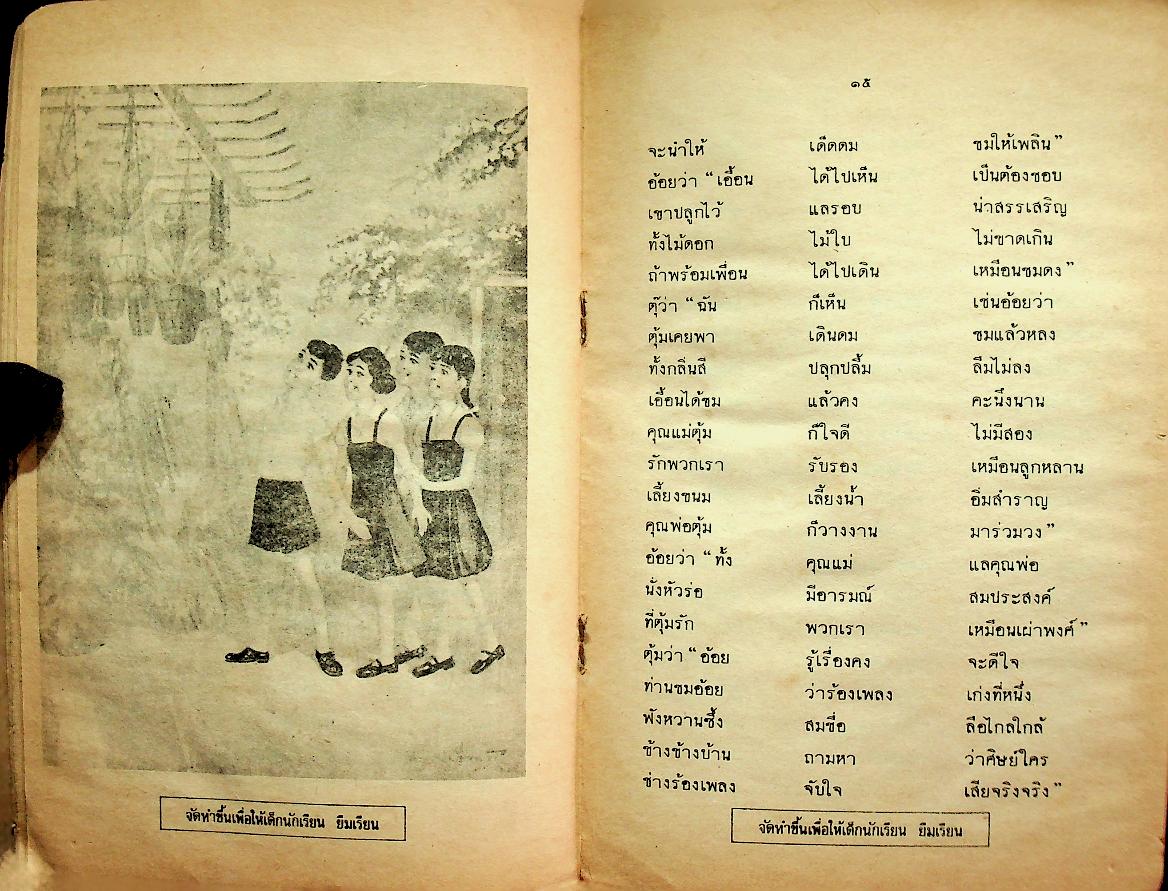 จัดทำขึ้นเพื่อให้เด็กนักเรียน ยืมเรียน
๑๕
จะนำให้ เด็ดดม ชมให้เพลิน”
อ้อยว่า “เอื้อน ได้ไปเห็น เป็นต้องชอบ
เขาปลูกไว้ แลรอบ น่าสรรเสริญ
ทั้งไม้ดอก ไม้ใบ ไม่ขาดเกิน
ถ้าพร้อมเพื่อน ได้ไปเดิน เหมือนชมดง”
ตุ๊ว่า “ฉัน ก็เห็น เช่นอ้อยว่า
ตุ้มเคยพา เดินดม ชมแล้วหลง
ทั้งกลิ่นสี ปลุกปลื้ม ลืมไม่ลง
เอื้อนได้ชม แล้วคง คะนึงนาน
คุณแม่ตุ้ม ก็ใจดี ไม่มีสอง
รักพวกเรา รับรอง เหมือนลูกหลาน
เลี้ยงขนม เลี้ยงน้ำ อิ่มสำราญ
คุณพ่อตุ้ม ก็วางงาน มาร่วมวง”
อ้อยว่า “ทั้ง คุณแม่ แลคุณพ่อ
นั่งหัวร่อ มีอารมณ์ สมประสงค์
ที่ตุ้มรัก พวกเรา เหมือนเผ่าพงศ์”
ตุ้มว่า “อ้อย รู้เรื่องคง จะดีใจ
ท่านชมอ้อย ว่าร้องเพลง เก่งที่หนึ่ง
ฟังหวานซึ้ง สมชื่อ ลือไกลใกล้
ข้างข้างบ้าน ถามหา ว่าศิษย์ใคร
ช่างร้องเพลง จับใจ เสียจริงจริง”
จัดทำขึ้นเพื่อให้เด็กนักเรียน ยืมเรียน